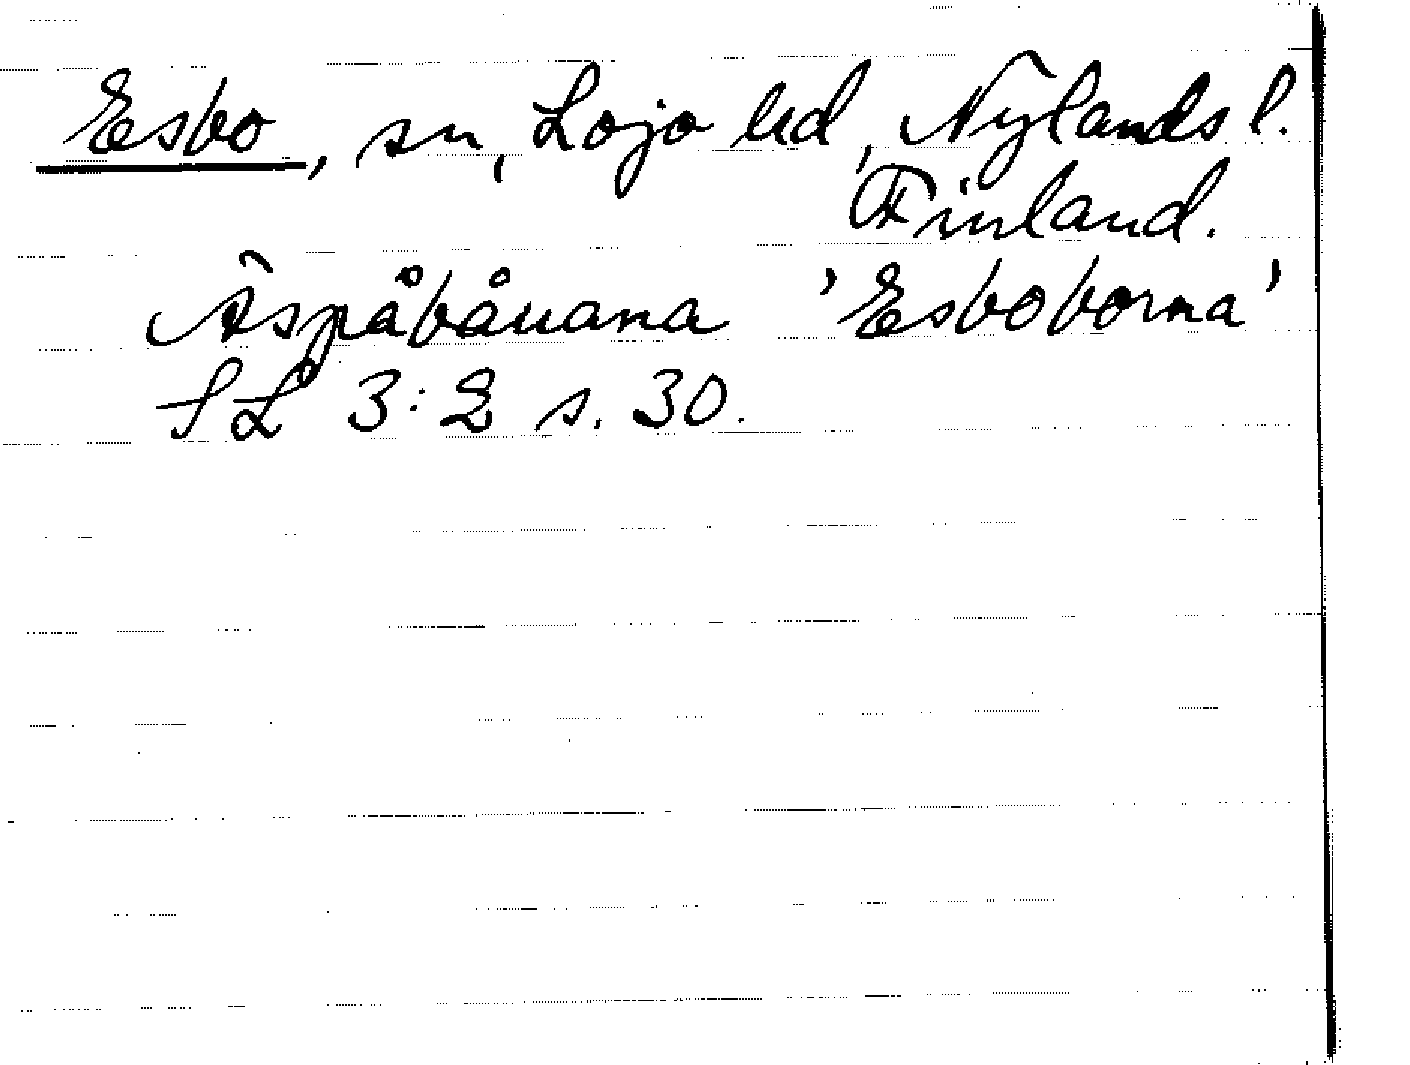 Esbo, sn, Lojo hd, Nylands l.
Finland.
Äspåbåuana 'Esboborna'
SL 3:2 s. 30.